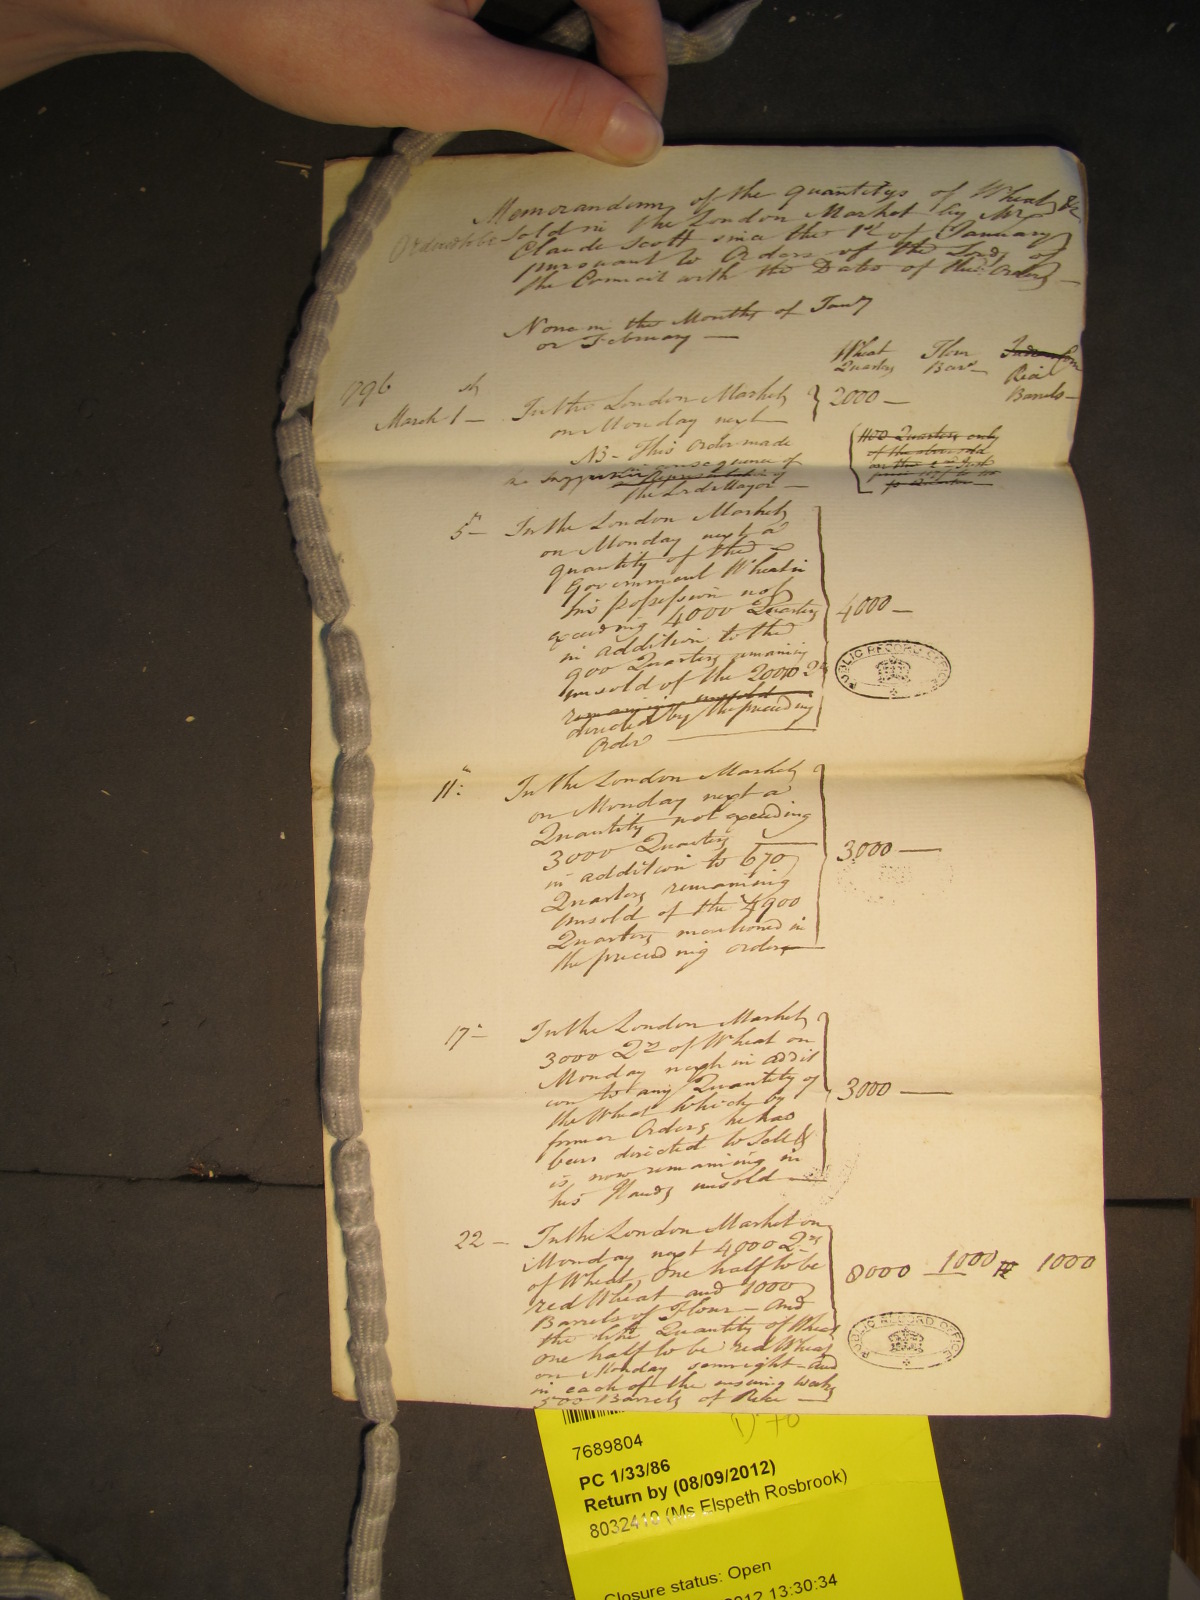 Memorandum of the quantitys of Wheat &c
Ordered to be sold in the London Market by Mr
Claude Scott since the 1st of January
pursuant to Orders of the Lords of
the Council with the Dates of their Orders —
None in the Months of Jany
or February —
Wheat Flour Indian Corn
Quarters Barr Rice
Barrels —
796
March 1st — In the London Market 2000 —
on Monday next
NB — This Order made
in consequence of
the Lord Mayor —
1100 Quarters only
of the above sold
on the
5th — In the London Market
on Monday next a
quantity of the
Government Wheat in
his possession not
exceeding 4000 Quarters 4000 —
in addition to the
900 Quarters remaining
unsold of the 2000 Qrs
remaining unsold
directed by the preceding
Order
PUBLIC RECORD OFFICE
11th In the London Market
on Monday next a
Quantity not exceeding
3000 Quarters 3000 —
in addition to 670
Quarters remaining
unsold of the 4900
Quarters mentioned in
the preceding order
17th In the London Market
3000 Qrs of Wheat on
Monday next in addit
ion to any Quantity of
the Wheat which by 3000 —
former Orders he has
been directed to Sell &
is now remaining in
his Hands unsold —
22 — In the London Market on
Monday next 4000 Qrs
of Wheat, one half to be 8000 1000 1000
red Wheat and 1000
Barrels of Flour — and
the like Quantity of Wheat
one half to be red Wheat
on Monday sennight — and
in each of the ensuing weeks
500 Barrels of Rice —
PUBLIC RECORD OFFICE
7689804
PC 1/33/86
Return by (08/09/2012)
8032410 (Ms Elspeth Rosbrook)
Closure status: Open
2012 13:30:34